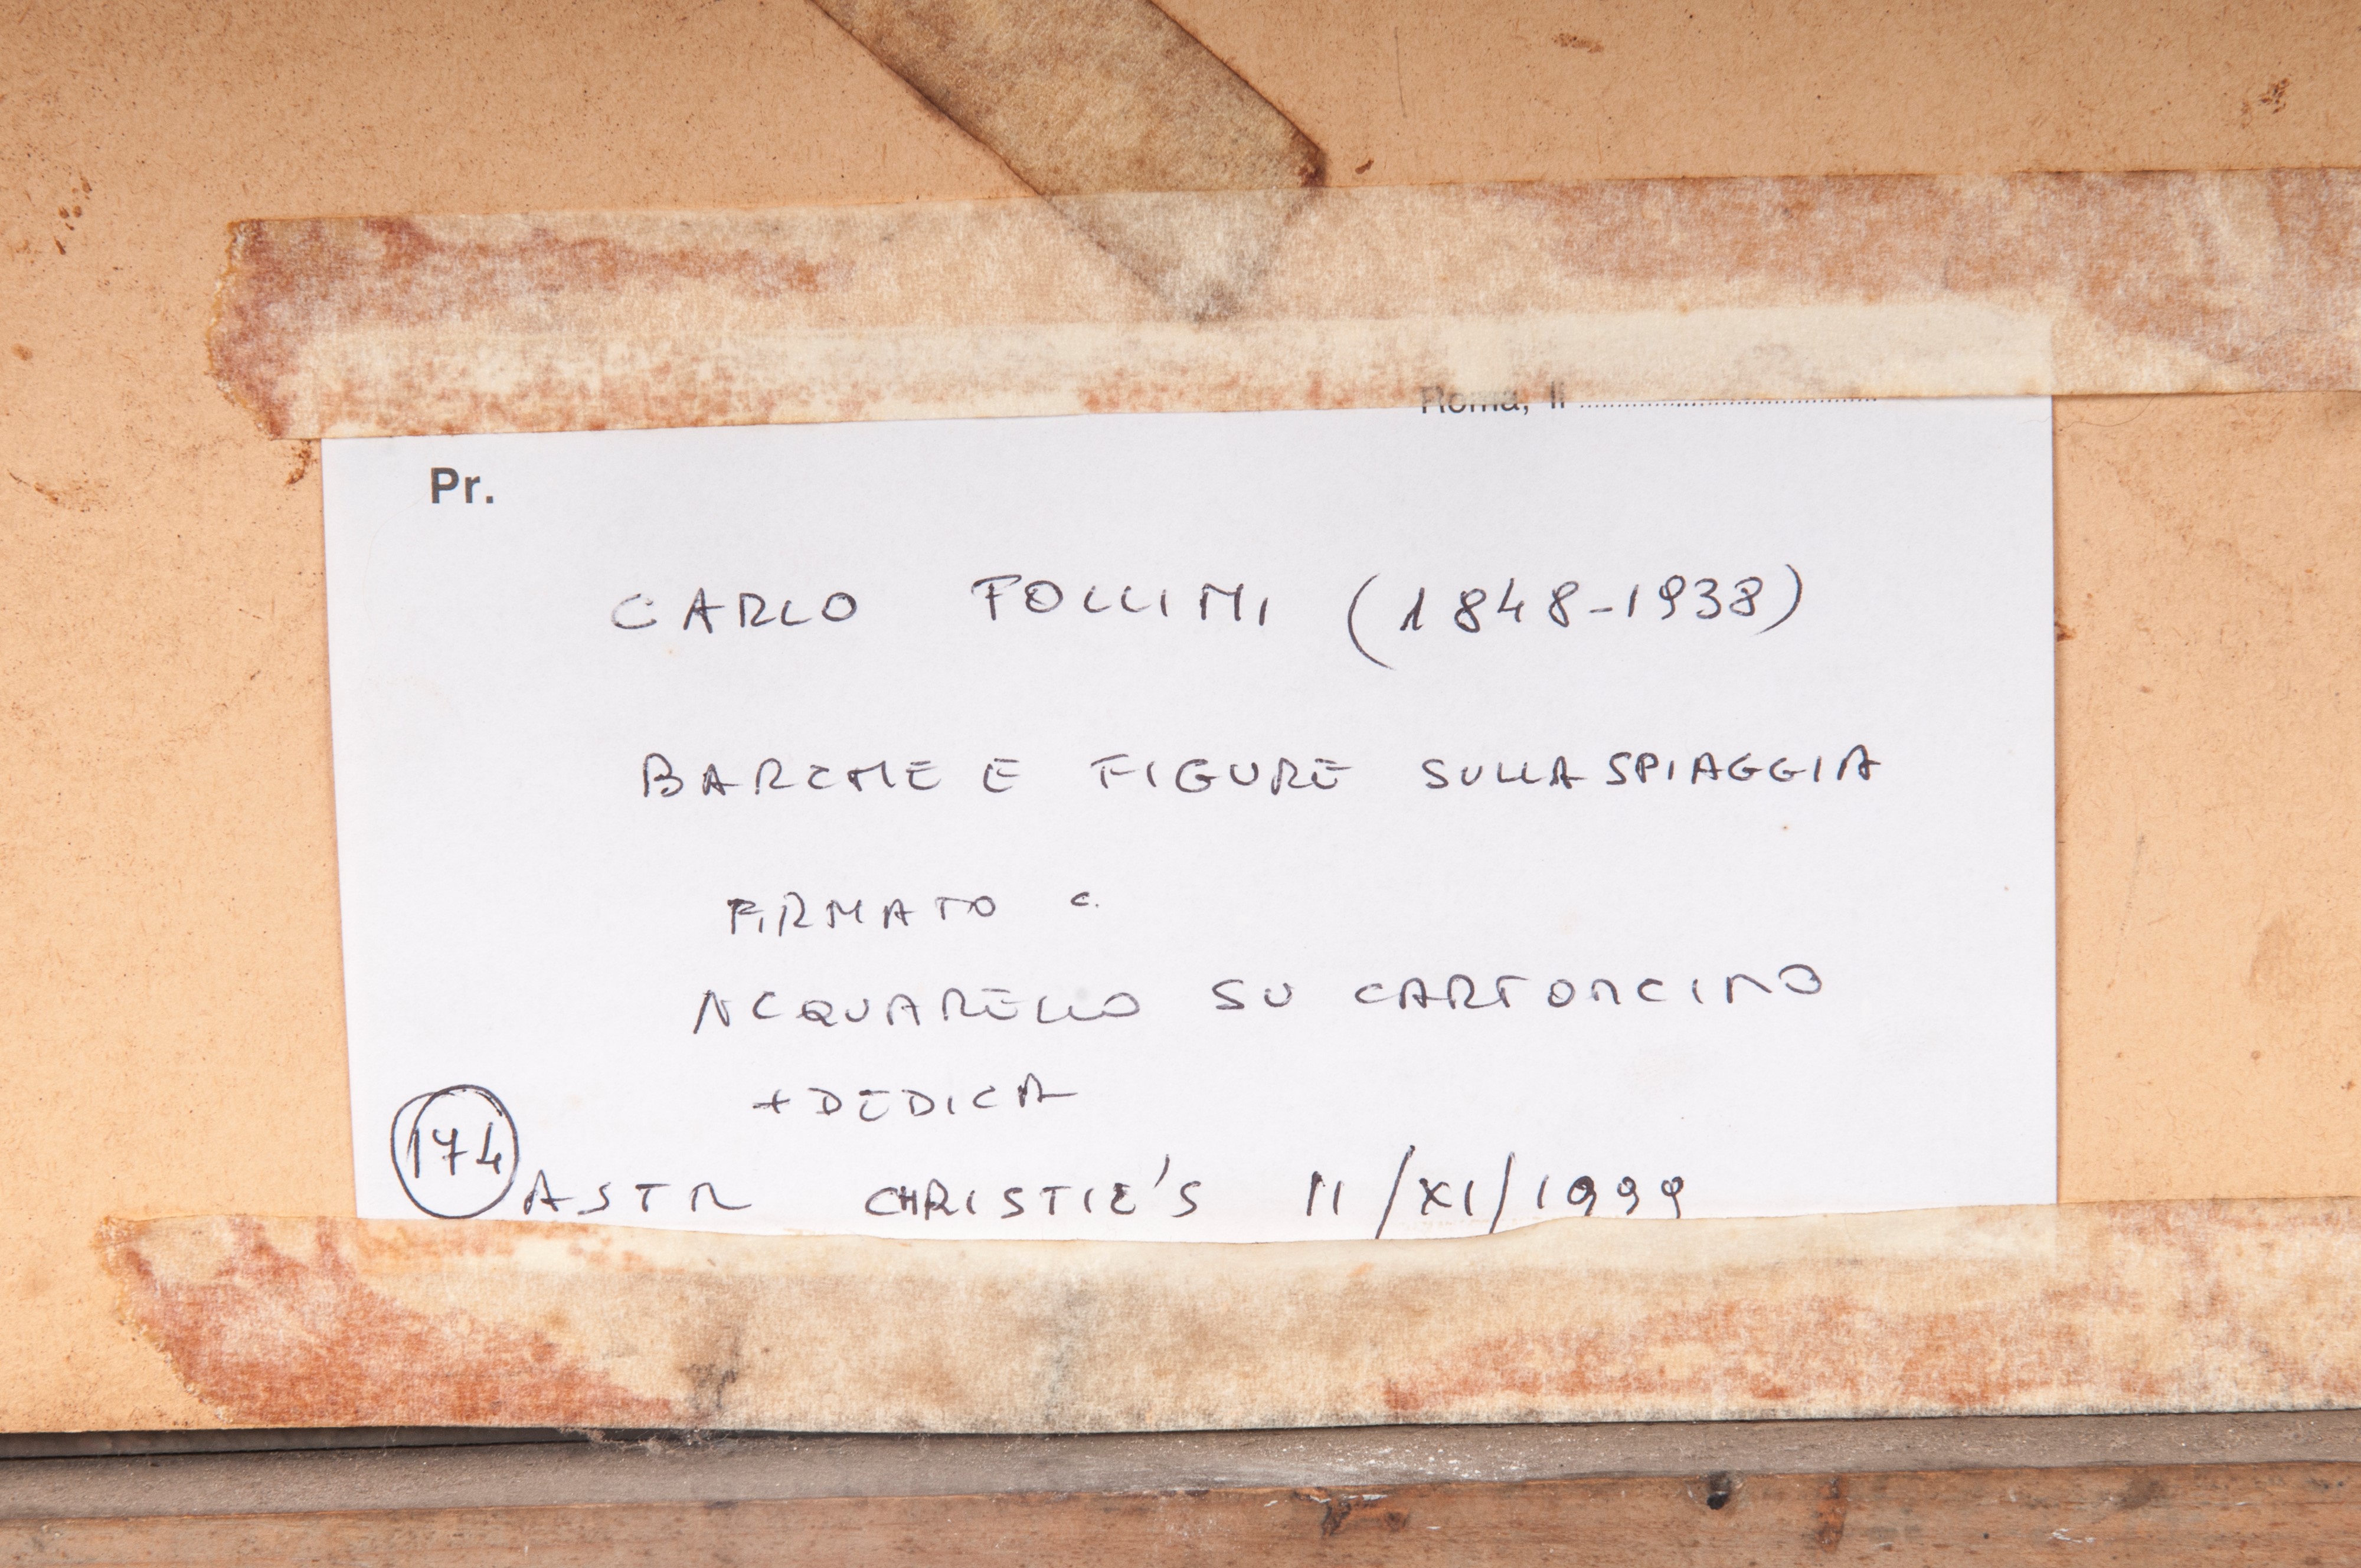 Roma, li
Pr.
CARLO FOLLINI (1848-1938)
BARCHE E FIGURE SULLA SPIAGGIA
FIRMATO C.
ACQUARELLO SU CARTONCINO
+ DEDICA
174 ASTA CHRISTIE'S 11/XI/1999